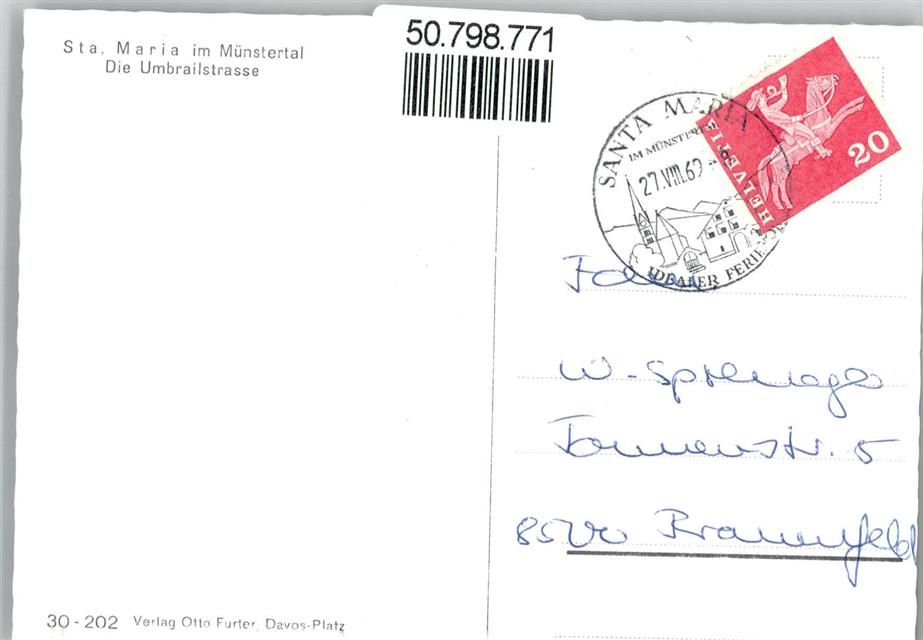 50.798.771
Sta. Maria im Münstertal
Die Umbrailstrasse
SANTA MARIA
IM MÜNSTERTAL
27.VIII.69
IDEALER FERIE
HELVETIA
20
W. Sprenagle
Tannenstr. 5
8500 Frauenfeld
30-202 Verlag Otto Furter, Davos-Platz